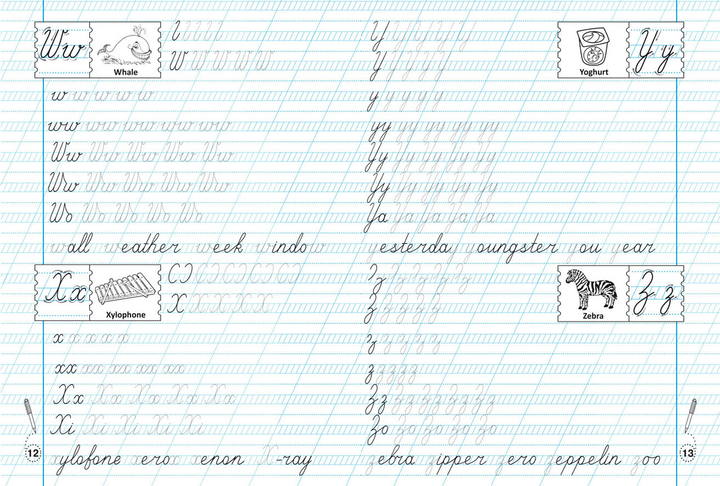 Ww
Whale
W W W W W
w w w w w
ww ww ww ww ww
Ww Ww Ww Ww Ww
Ww Ww Ww Ww Ww
Wo Wo Wo Wo Wo
wall weather week window
Xx
Xylophone
X X X X X
x x x x x
xx xx xx xx xx
Xx Xx Xx Xx Xx
Xi Xi Xi Xi Xi
xylofone xerox xenon X-ray
12
Yoghurt
Yy
Y Y Y Y Y
y y y y y
yy yy yy yy yy
Yy Yy Yy Yy Yy
Yy Yy Yy Yy Yy
Ya Ya Ya Ya Ya
yesterday youngster you year
Zebra
Zz
Z Z Z Z Z
z z z z z
zz zz zz
Zz Zz Zz Zz Zz
Zo Zo Zo Zo Zo
zebra zipper zero zeppelin zoo
13